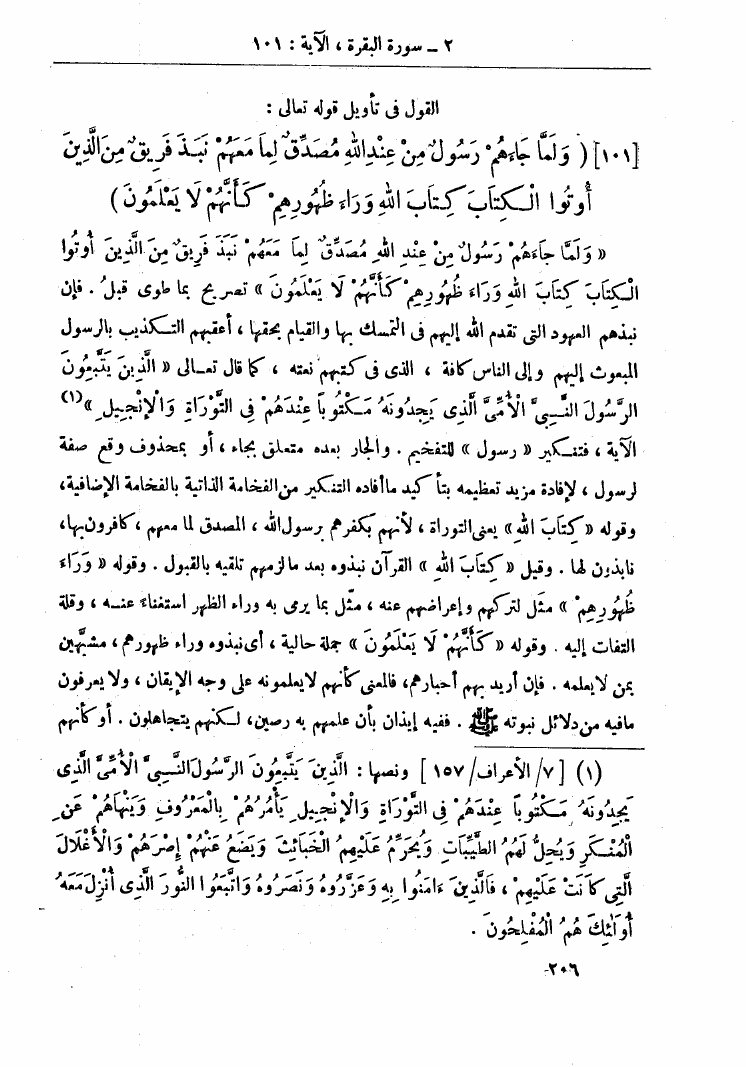 ٢ ـ سورة البقرة ، الآية : ١٠١
القول فى تأويل قوله تعالى :
[١٠١] ( وَلَمَّا جَاءَهُمْ رَسُولٌ مِنْ عِنْدِ اللهِ مُصَدِّقٌ لِمَا مَعَهُمْ نَبَذَ فَرِيقٌ مِنَ الَّذِينَ
أُوتُوا الْكِتَابَ كِتَابَ اللهِ وَرَاءَ ظُهُورِهِمْ كَأَنَّهُمْ لَا يَعْلَمُونَ )
« وَلَمَّا جَاءَهُمْ رَسُولٌ مِنْ عِنْدِ اللهِ مُصَدِّقٌ لِمَا مَعَهُمْ نَبَذَ فَرِيقٌ مِنَ الَّذِينَ أُوتُوا
الْكِتَابَ كِتَابَ اللهِ وَرَاءَ ظُهُورِهِمْ كَأَنَّهُمْ لَا يَعْلَمُونَ » تصريح بما طوى قبلُ . فإن
نبذهم العهود التى تقدم الله إليهم فى التمسك بها والقيام بحقها ، أعقبهم التكذيب بالرسول
المبعوث إليهم وإلى الناس كافة ، الذى فى كتبهم نعته ، كما قال تعالى « الَّذِينَ يَتَّبِعُونَ
الرَّسُولَ النَّبِىَّ الْأُمِّىَّ الَّذِى يَجِدُونَهُ مَكْتُوباً عِنْدَهُمْ فِى التَّوْرَاةِ وَالْإِنْجِيلِ »(١)
الآية ، فتنكير « رسول » للتفخيم . والجار بعده متعلق بجاء ، أو بمحذوف وقع صفة
لرسول ، لإفادة مزيد تعظيمه بتأكيد ما أفاده التنكير من الفخامة الذاتية بالفخامة الإضافية،
وقوله «كِتَابَ اللهِ» يعنى التوراة ، لأنهم بكفرهم برسول الله ، المصدق لما معهم ، كافرون بها،
نابذون لها . وقيل « كِتَابَ اللهِ » القرآن نبذوه بعد ما لزمهم تلقيه بالقبول . وقوله « وَرَاءَ
ظُهُورِهِمْ » مثَل لتركهم وإعراضهم عنه ، مثّل بما يرمى به وراء الظهر استغناءً عنه ، وقلة
التفات إليه . وقوله « كَأَنَّهُمْ لَا يَعْلَمُونَ » جملة حالية ، أى نبذوه وراء ظهورهم، مشبَّهين
بمن لا يعلمه . فإن أريد بهم أحبارهم، فالمعنى كأنهم لا يعلمونه على وجه الإيقان ، ولا يعرفون
ما فيه من دلائل نبوته ﷺ . ففيه إيذان بأن علمهم به رصين، لكنهم يتجاهلون . أو كأنهم
(١) [٧/ الأعراف/ ١٥٧] ونصها : الَّذِينَ يَتَّبِعُونَ الرَّسُولَ النَّبِىَّ الْأُمِّىَّ الَّذِى
يَجِدُونَهُ مَكْتُوباً عِنْدَهُمْ فِى التَّوْرَاةِ وَالْإِنْجِيلِ يَأْمُرُهُمْ بِالْمَعْرُوفِ وَيَنْهَاهُمْ عَنِ
الْمُنْكَرِ وَيُحِلُّ لَهُمُ الطَّيِّبَاتِ وَيُحَرِّمُ عَلَيْهِمُ الْخَبَائِثَ وَيَضَعُ عَنْهُمْ إِصْرَهُمْ وَالْأَغْلَالَ
الَّتِى كَانَتْ عَلَيْهِمْ ، فَالَّذِينَ ءَامَنُوا بِهِ وَعَزَّرُوهُ وَنَصَرُوهُ وَاتَّبَعُوا النُّورَ الَّذِى أُنْزِلَ مَعَهُ
أُولَٰئِكَ هُمُ الْمُفْلِحُونَ .
٢٠٦